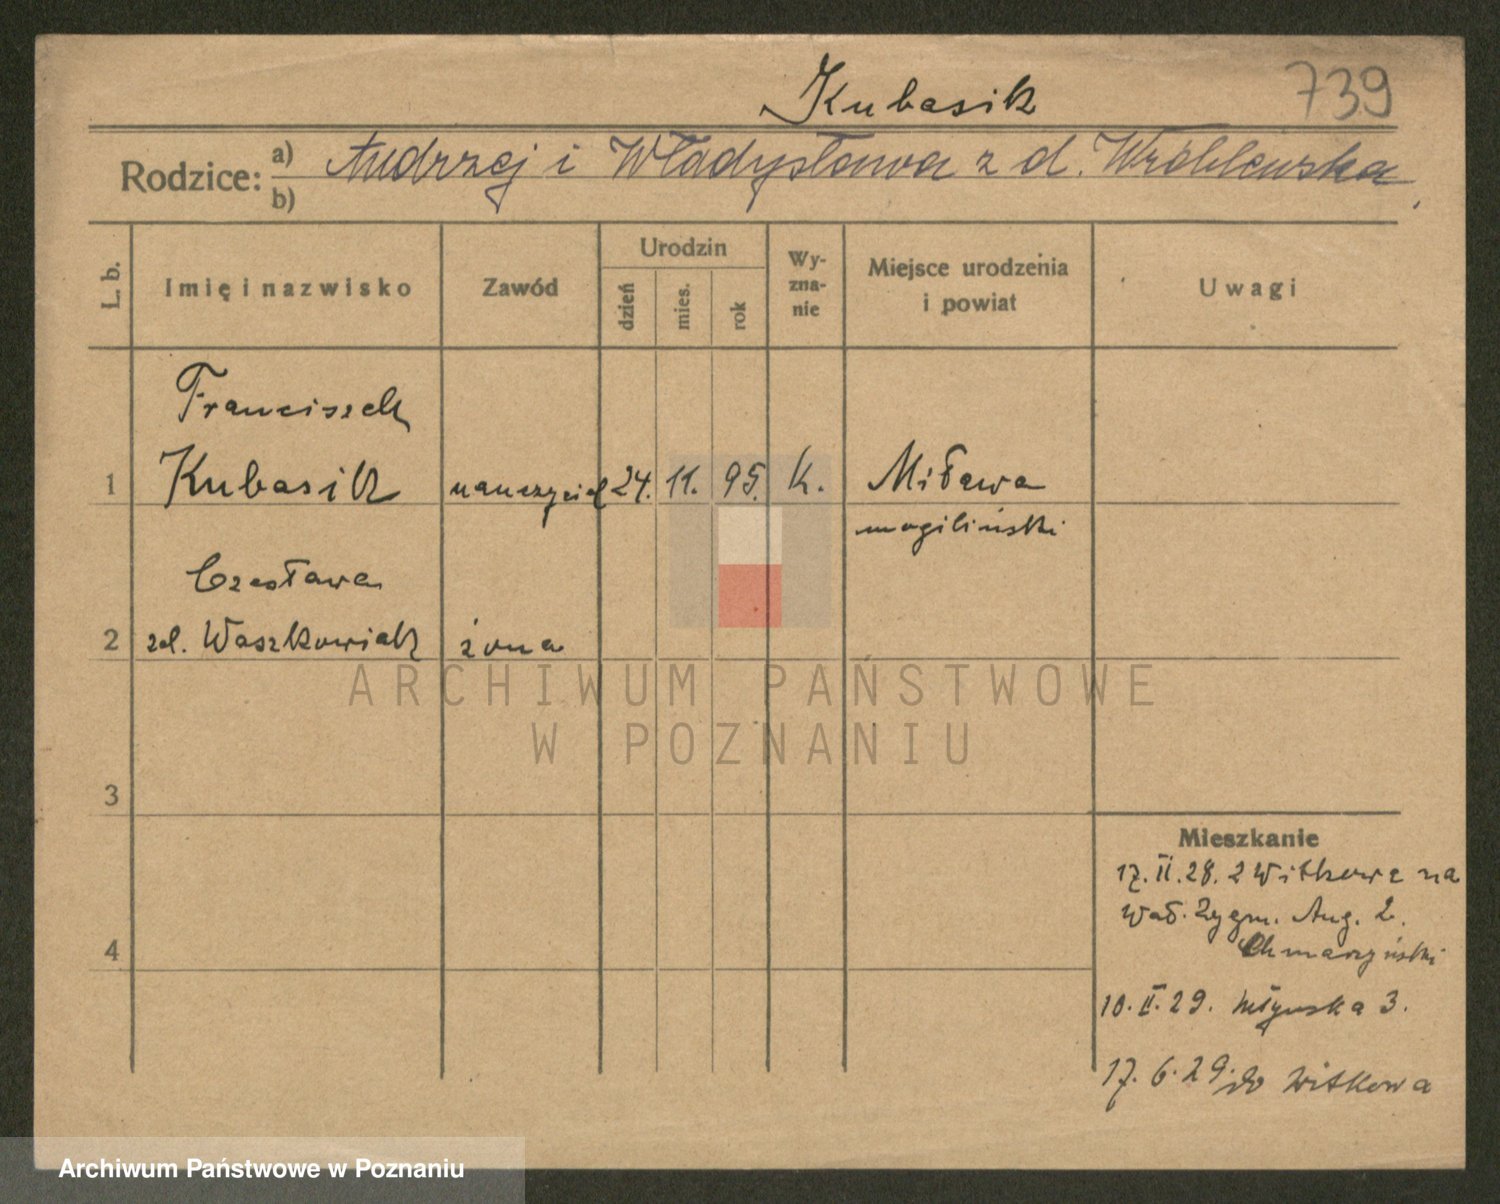 Kubasik
739
Rodzice: a) Andrzej i Władysława z d. Wróblewska
b)
L. b.
Imię i nazwisko
Zawód
Urodzin
dzień
mies.
rok
Wy-
zna-
nie
Miejsce urodzenia
i powiat
Uwagi
Franciszek
1 Kubasik nauczyciel 24. 11. 95. K. Miława
mogiliński
Czesława
2 zd. Waszkowiak żona
3
4
Mieszkanie
17.II.28. z Witkowa na
Wał. Zygm. Aug. 2.
Chmarzyński
10.II.29. Młyńska 3.
17.6.29. do Witkowa
ARCHIWUM PAŃSTWOWE
W POZNANIU
Archiwum Państwowe w Poznaniu